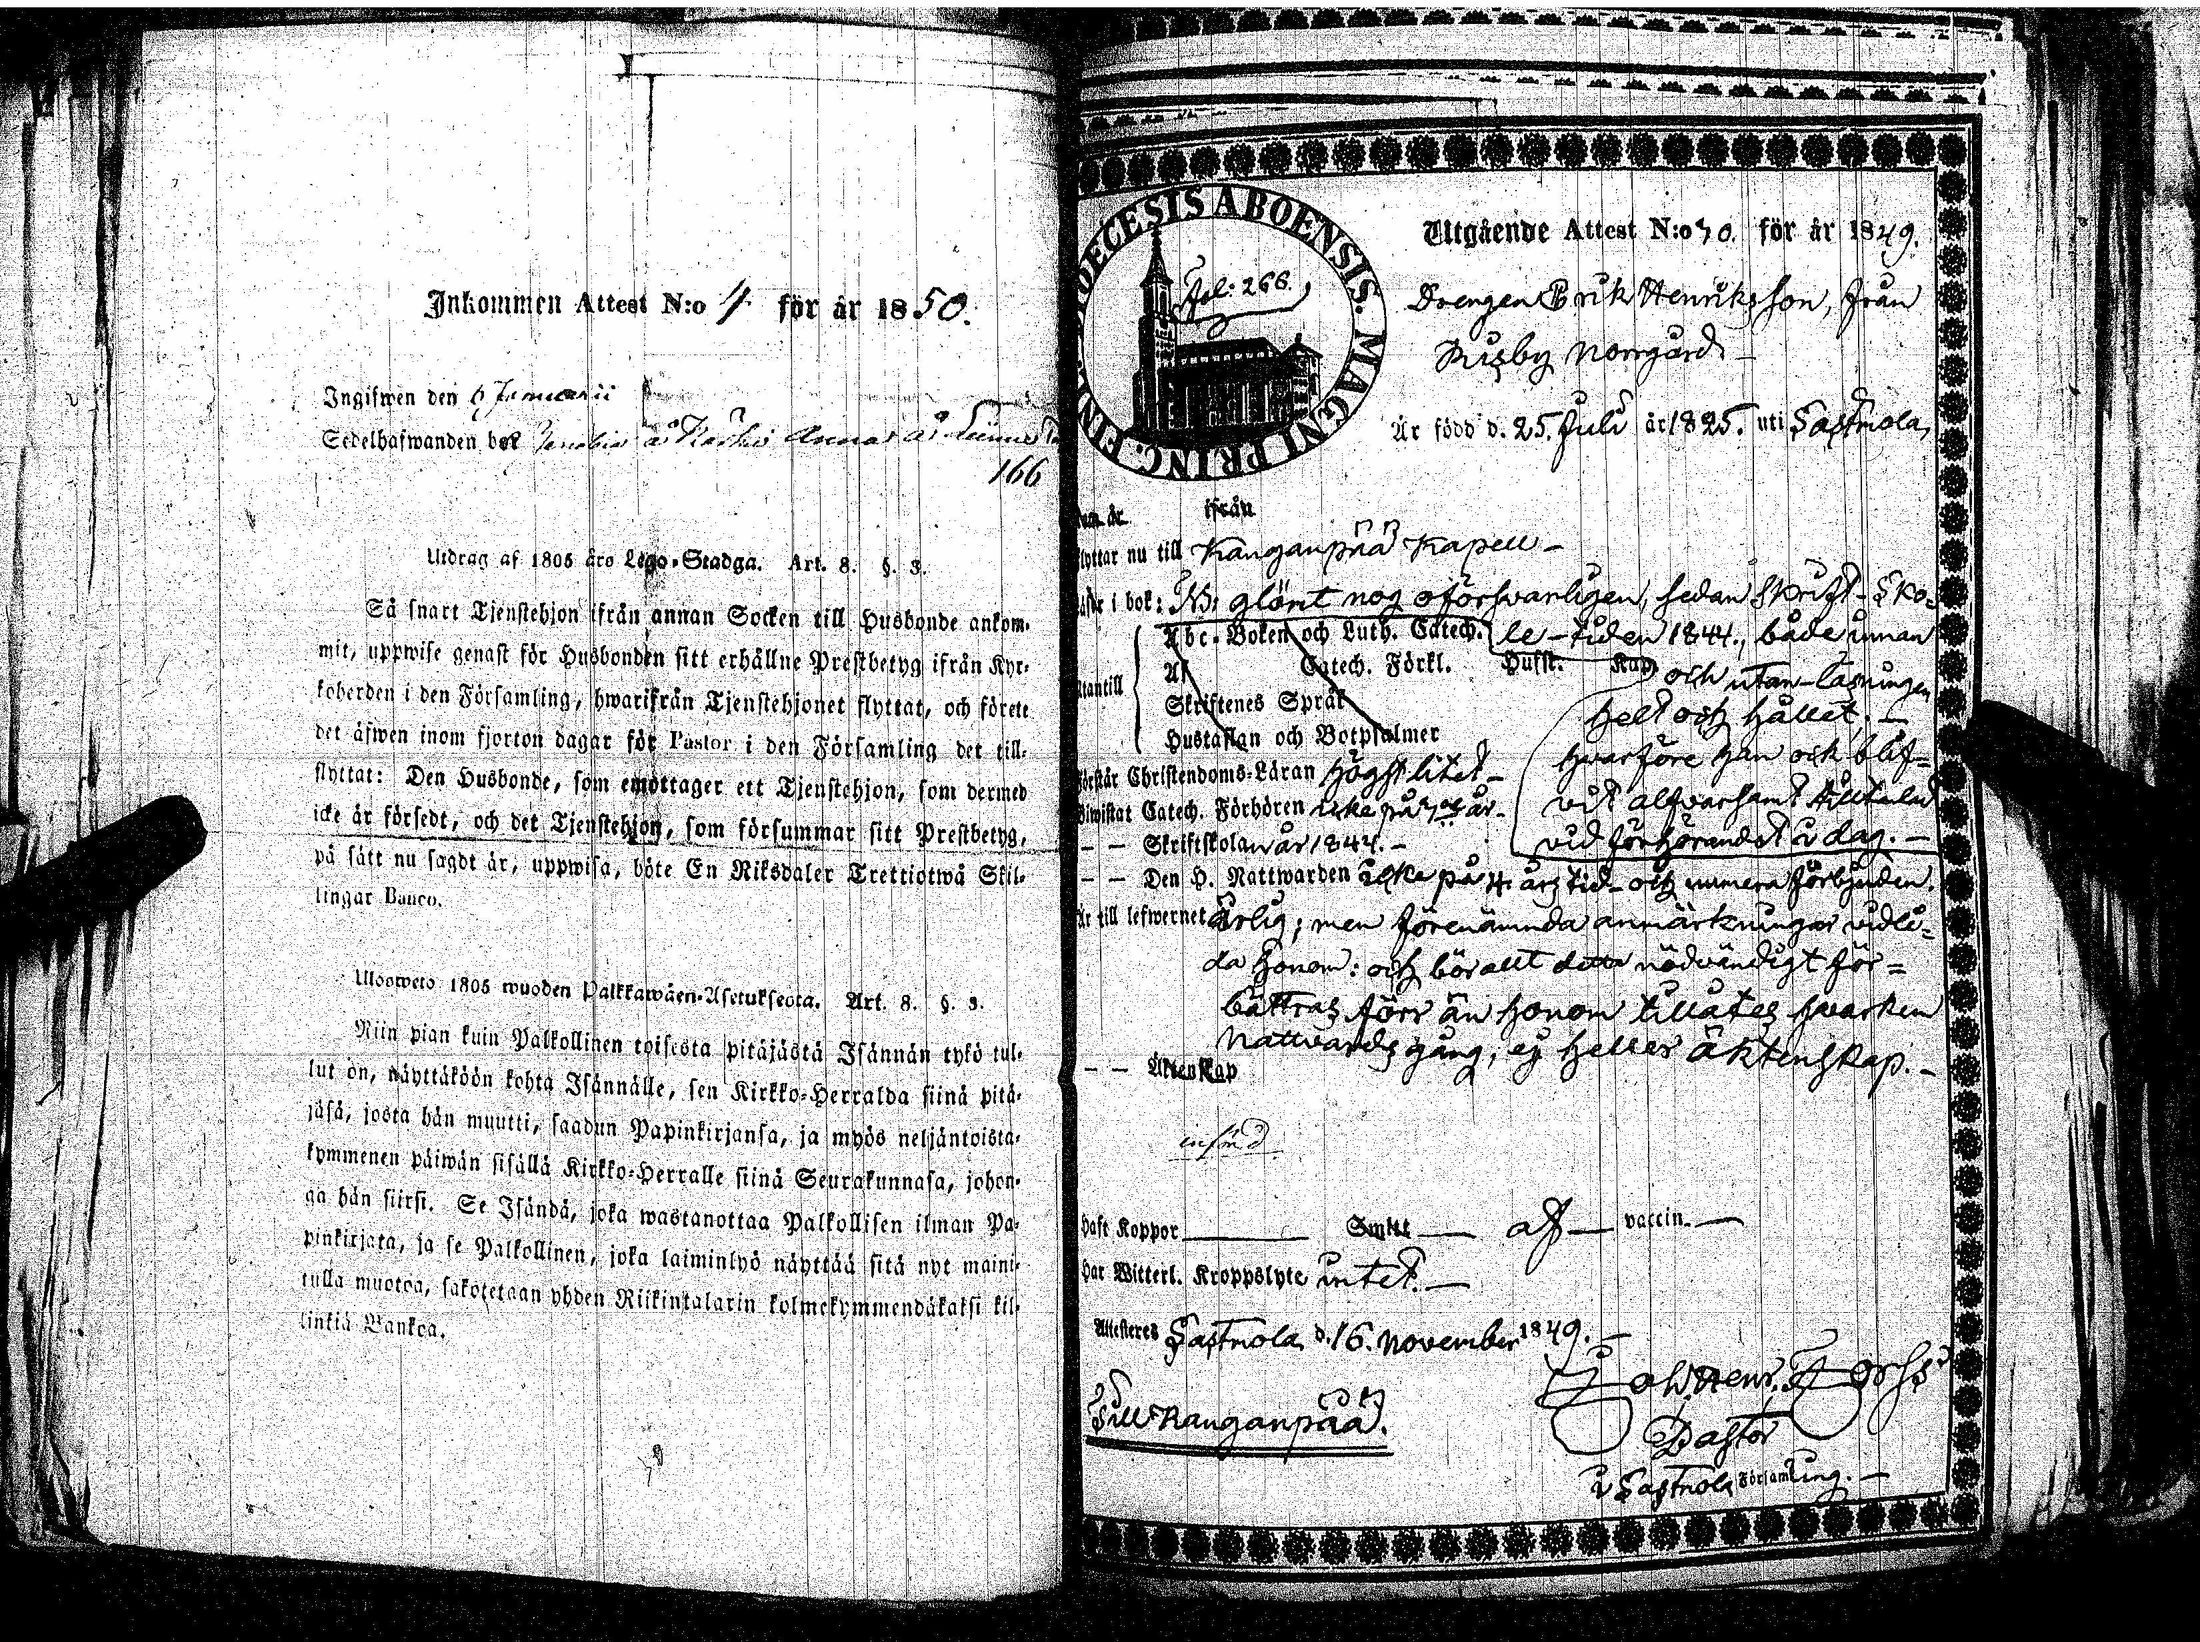 Inkommen Attest N:o 4 för år 1850.
Ingifwen den 6 Januarii
Sedelhafwanden bor
166
Utdrag af 1805 års Lego-Stadga. Art. 8. §. 3.
Så snart Tjenstehjon ifrån annan Socken till Husbonde ankom-
mit, uppwise genast för Husbonden sitt erhållne Prestbetyg ifrån Kyr-
koherden i den Församling, hwarifrån Tjenstehjonet flyttat, och förete
det äfwen inom fjorton dagar för Pastor i den Församling det till-
flyttat: Den Husbonde, som emottager ett Tjenstehjon, som dermed
icke är försedt, och det Tjenstehjon, som försummar sitt Prestbetyg,
på sätt nu sagdt är, uppwisa, böte En Riksdaler Trettiotwå Skil-
lingar Banco.
Ulosweto 1805 wuoden Palkkawäen-Asetuksesta. Art. 8. §. 3.
Niin pian kuin Palkollinen toisesta pitäjästä Isännän tykö tul-
lut on, näyttäköön kohta Isännälle, sen Kirkko-Herralda siinä pitä-
jäsä, josta hän muutti, saadun Papinkirjansa, ja myös neljäntoista-
kymmenen päiwän sisällä Kirkko-Herralle siinä Seurakunnasa, johon-
ga hän siirsi. Se Isändä, joka wastanottaa Palkollisen ilman Pa-
pinkirjata, ja se Palkollinen, joka laiminlyö näyttää sitä nyt maini-
tulla muotoa, sakotetaan yhden Riikintalarin kolmekymmendäkaksi kil-
linkiä Bankoa.
DIOECESIS ABOENSIS. MAGNI PRINC. FINL.
Fol: 266.
Utgående Attest N:o 70. för år 1849.
Drengen Erik Henriksson, från
Risby Norrgård –
Är född d. 25. Juli år 1825. uti Sastmola,
ifrån
flyttar nu till Kanganpää Kapell –
Läser i bok: NB: glömt nog oförsvarligen, sedan Skrift-Sko-
Abc-Boken och Luth. Catech. le-tiden 1844., både innan
Catech. Förkl. Hufst. Kap. och utan-läsningen
Utantill Skriftenes Språk helt och hållet; –
Hustaflan och Botpsalmer hvarföre han ock blif-
Förstår Christendoms-Läran högst litet – vit alfvarsamt tilltalad
Biwistat Catech. Förhören icke på år. vid förhörandet i dag. –
– – Skriftskolan år 1844. –
– – Den H. Nattwarden icke på 4 års tid – och numera förbjuden.
Är till lefwernet ärlig; men förenämnda anmärkningar vidlå-
da honom: och bör allt detta nödvändigt för-
bättras förr än honom tillåtes hvarken
Nattvards gång, ej heller äktenskap. –
– – Äktenskap
Haft Koppor Smitt af vaccin.
Har Witterl. Kroppslyte intet. –
Attesteres Sastmola d. 16. November 1849. –
Joh. Henr. Forss
Till Kanganpää.
Pastor
i Sastmola Församling. –